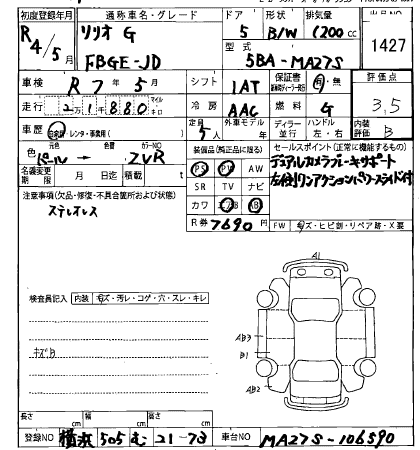 初度登録年月 通称車名・グレード ドア 形状 排気量 出品NO
R4/5月 ソリオ G 5 B/W 1200cc 1427
FBGE-JD 型式 5BA-MA27S
車検 R7年5月 シフト IAT 保証書 有・無 評価点
走行 21880 マイル キロ 冷房 AAC 燃料 G 3.5
車歴 自家用・レンタ・事業用( ) 定員 5人 外車モデル ディーラー 並行 ハンドル 左・右 内装評価 B
色 元色 パール→ 色替 カラーNO ZVR 装備品(純正品に限る) セールスポイント(正常に機能するもの)
名義変更期限 月 日迄 積載 t PS PW サンルーフ デュアルカメラブレーキサポート
注意事項(欠品・修復・不具合箇所および状態) SR TV ナビ 左右リワンアクションパワースライド付
ステレオレス カワ エアB AB
R券 7690円 FW キズ・ヒビ割・リペア跡・X要
検査員記入 内装 キズ・汚レ・コゲ・穴・スレ・キレ A1
キズB AB3
B1
AB2
長さ cm 幅 cm 高さ cm
登録NO 横浜 505 む 21-73 車台NO MA27S-106590